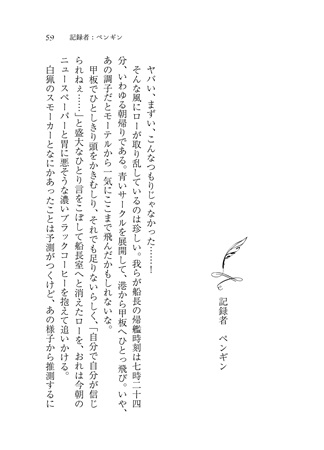 59　記録者：ペンギン
記録者　ペンギン
ヤバい、まずい、こんなつもりじゃなかった……！
そんな風にローが取り乱しているのは珍しい。我らが船長の帰艦時刻は七時二十四
分、いわゆる朝帰りである。青いサークルを展開して、港から甲板へひとっ飛び。いや、
あの調子だとモーテルから一気にここまで飛んだかもしれないな。
甲板でひとしきり頭をかきむしり、それでも足りないらしく、「自分で自分が信じ
られねぇ……」と盛大なひとり言をこぼして船長室へと消えたローを、おれは今朝の
ニュースペーパーと胃に悪そうな濃いブラックコーヒーを抱えて追いかける。
白猟のスモーカーとなにかあったことは予測がつくけど、あの様子から推測するに